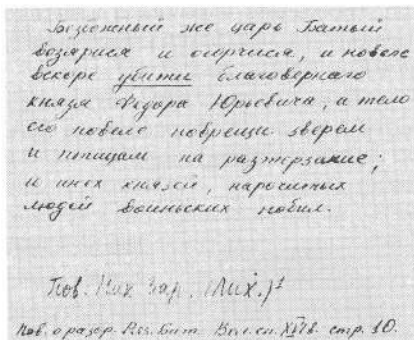 Безбожный же царь Батый
возярися и огорчися, и повеле
вскоре убити благоверного
князя Федора Юрьевича, а тело
его повеле поврещи зверем
и птицам на разтерзание;
и инех князей, нарочитых
людей воиньских побил.
Пов. Ник. Зар. (Лих.)¹
Пов. о разор. Ряз. Бат. Вол. сп. XVI в. стр. 10.